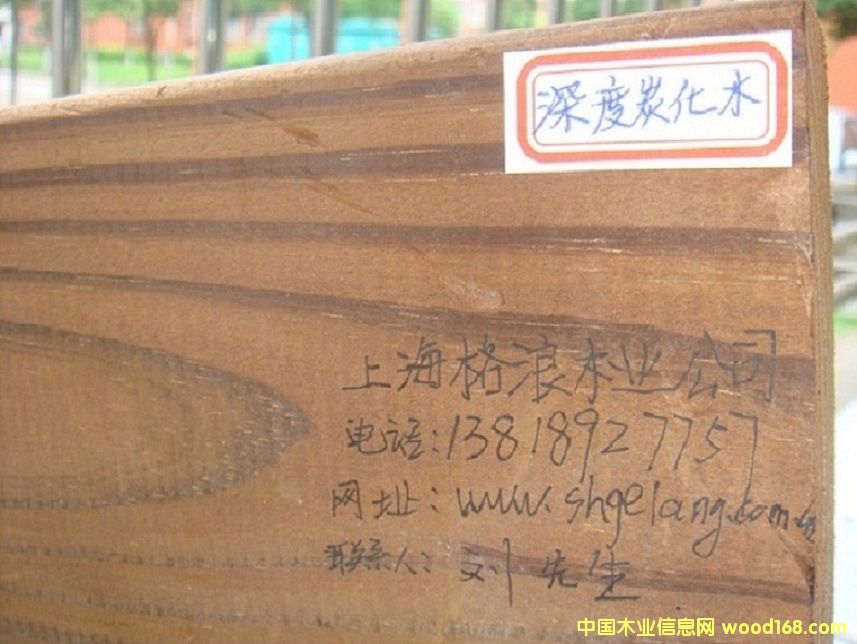 深度炭化水
上海格浪木业公司
电话:13818927757
网址:www.shgelang.com.cn
联系人:刘先生
中国木业信息网 wood168.com